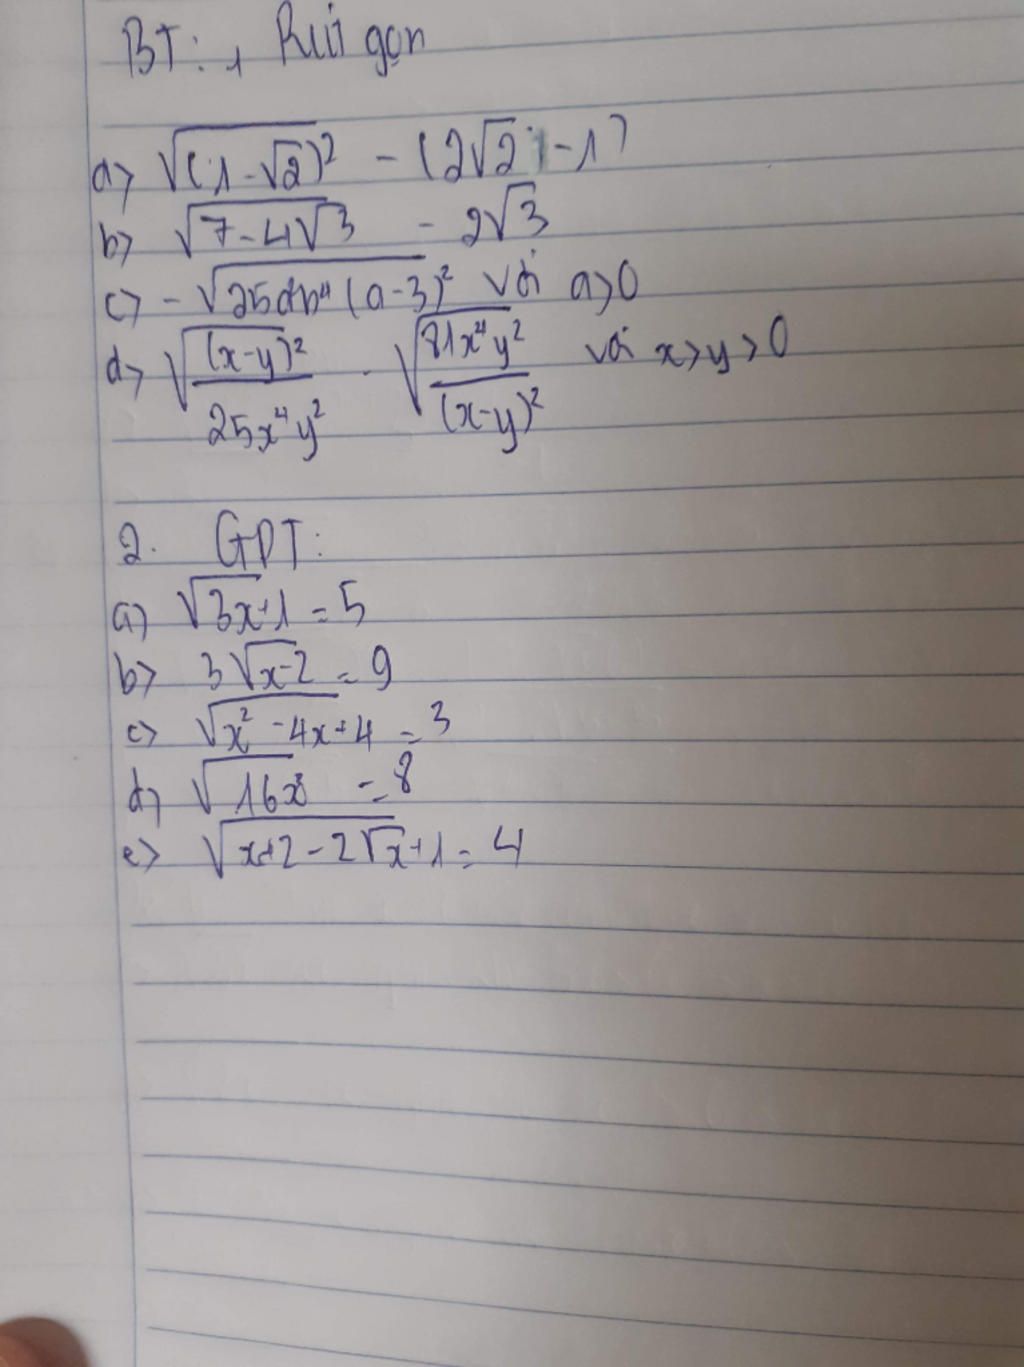 BT: 1, Rút gọn
a> √(1-√2)² - (2√2 - 1)
b> √7-4√3 - 2√3
c> -√25a²b⁴(a-3)² với a>0
d> √(x-y)²/25x⁴y² . √81x⁴y²/(x-y)² với x>y>0
2. GPT:
a) √3x+1 = 5
b> 3√x-2 = 9
c> √x²-4x+4 = 3
d> √16x = 8
e> √x+2-2√x+1 = 4